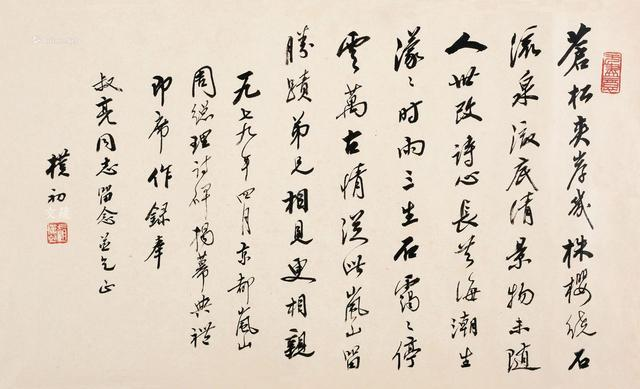 蒼松夾岸幾株櫻繞石
流泉澈底清景物未隨
人世改詩心長共海潮生
濛〻時雨三生石靄〻停
雲萬古情從此嵐山留
勝蹟弟兄相見更相親
一九七九年四月京都嵐山
周總理詩碑揭幕典禮
即席作錄奉
叔亮同志留念並乞正
樸初